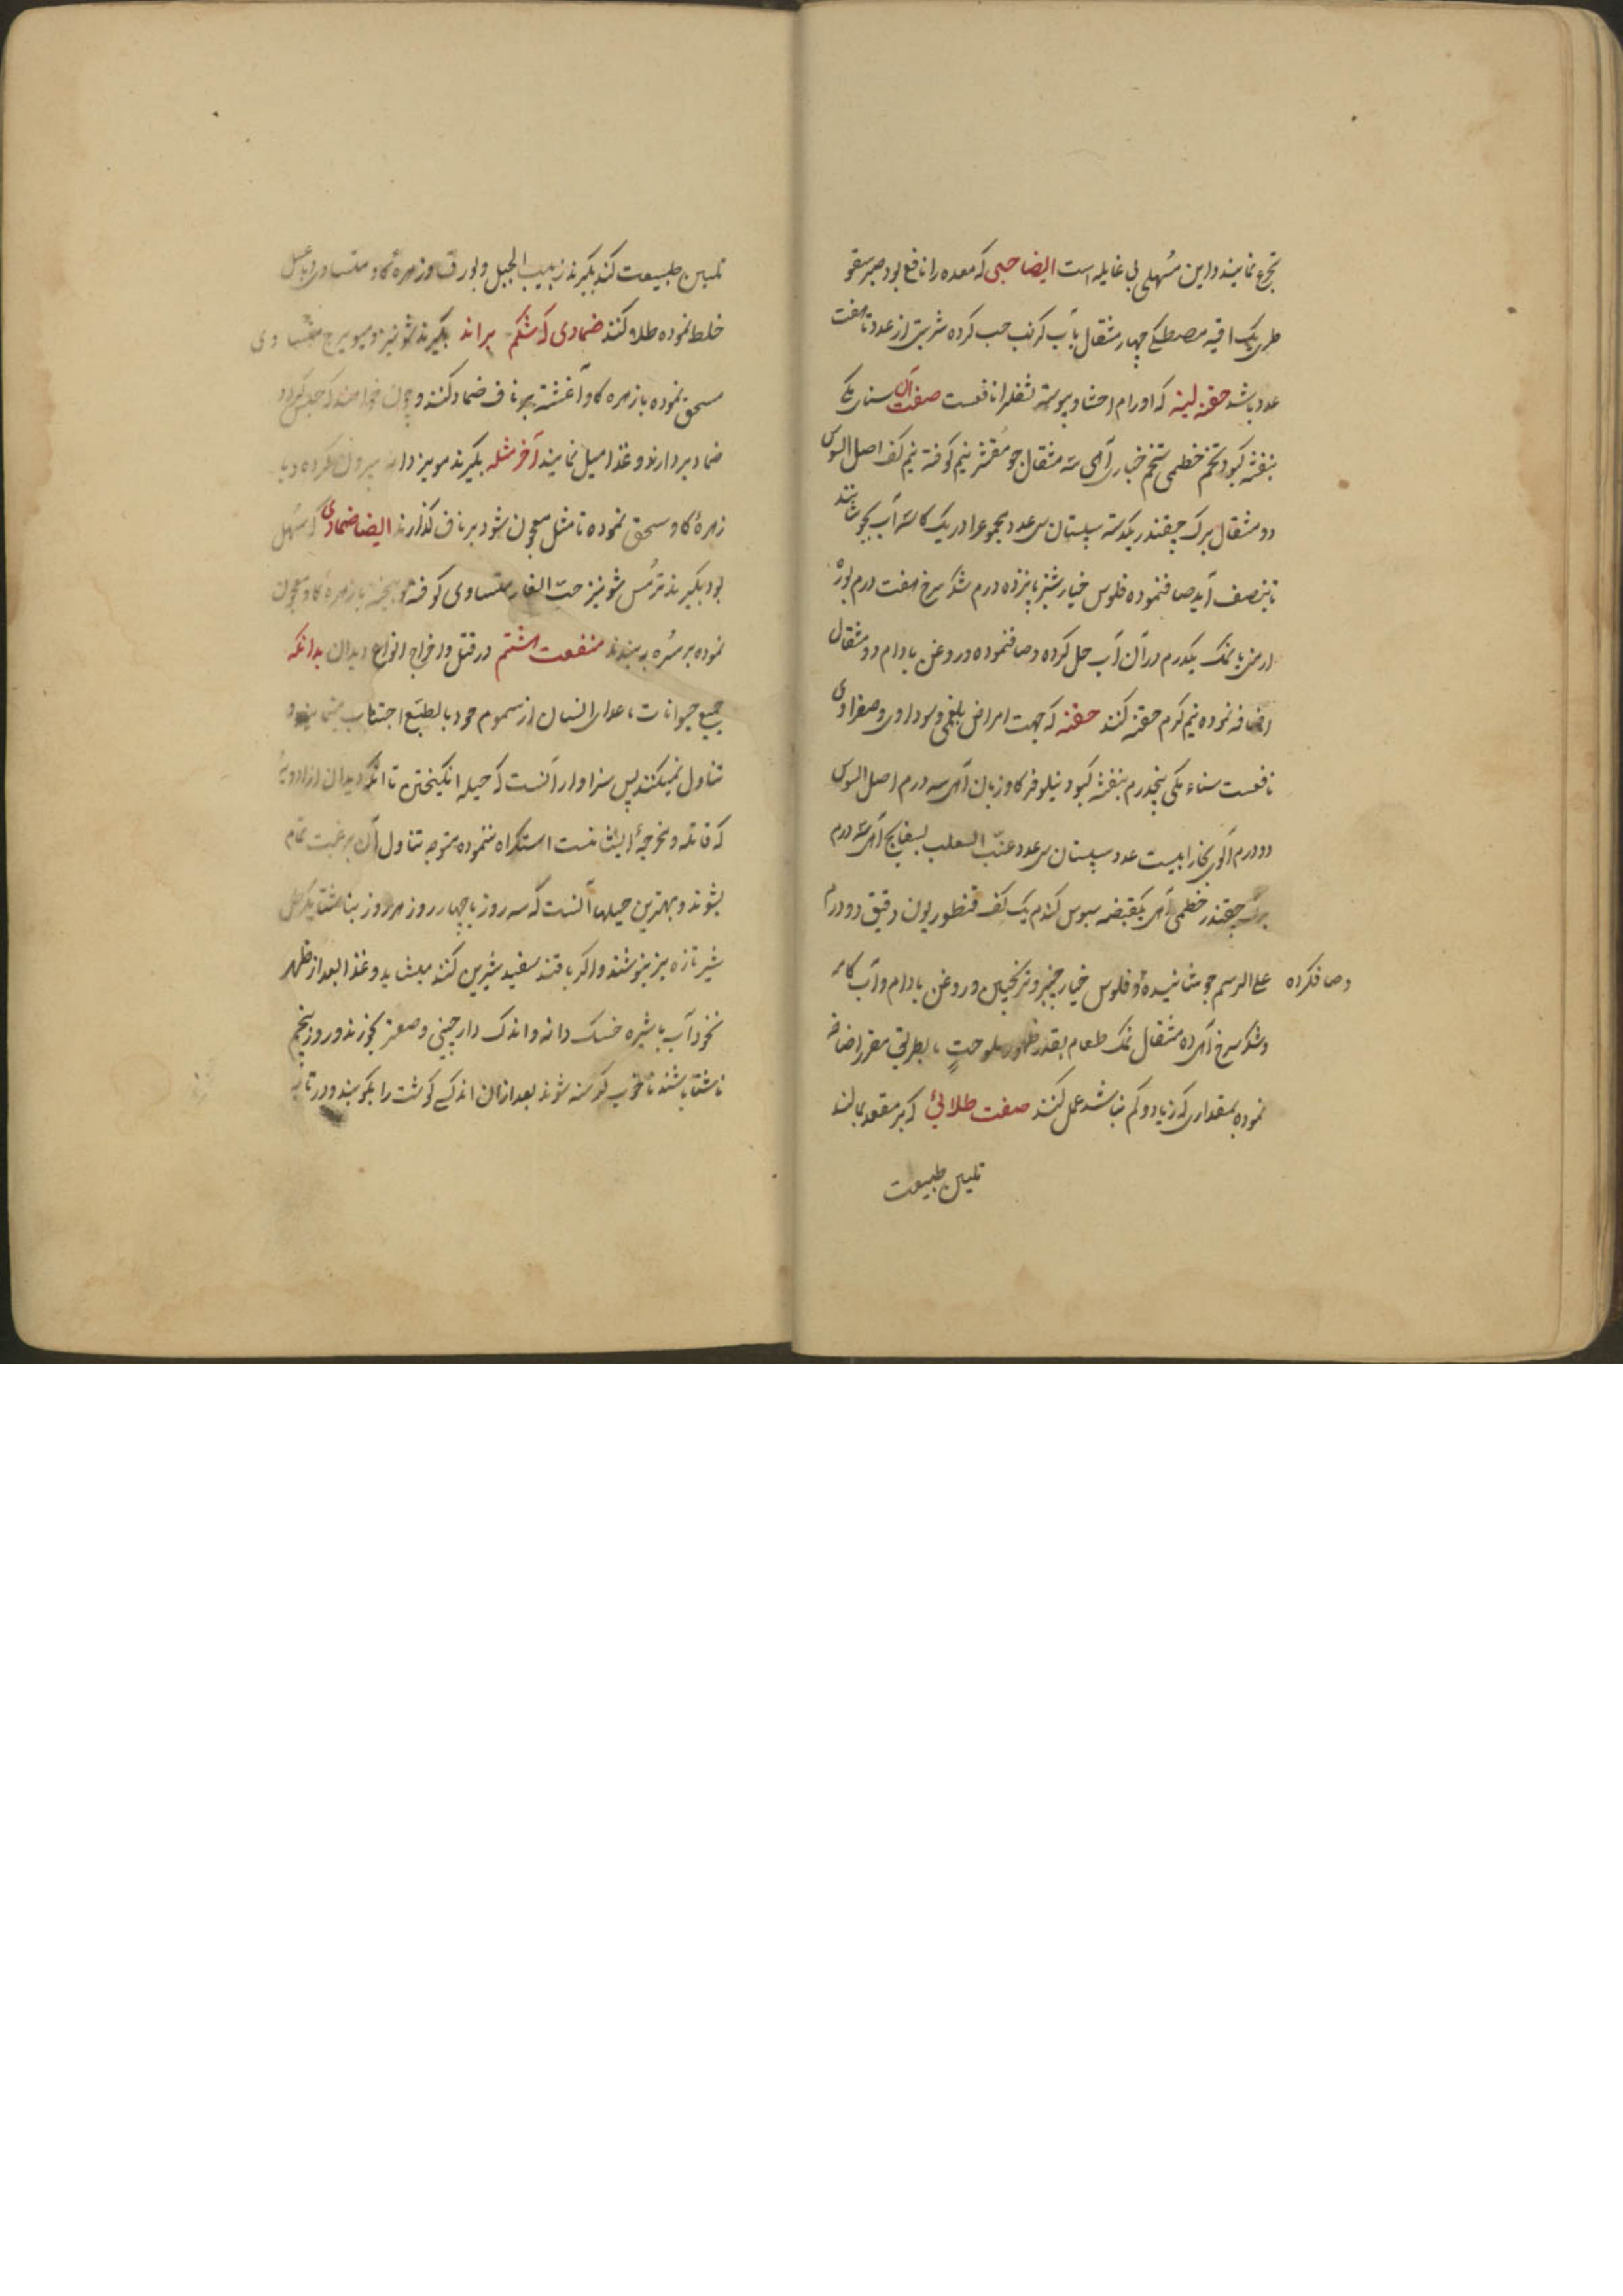 تجرع نمایند و این مسهلی بی غایله است ایضا حبی که معده را نافع بود صبر سقو
طری یک اقیه مصطکی چهار مثقال بآب کرنب حب کرده شربتی از عدد تا هفت
عدد باشد حقنه لینه که اورام احشا و یبوسة ثفلرا نافعست صفت آن سناء مکی
بنفشه کبود تخم خطمی تخم خیاری آهی سه مثقال جو مقشر نیم کوفته نیم کف اصل السوس
دو مثقال برک چقندر یکدسته سپستان سی عدد مجموعرا در یک کاسه آب بجوشانند
تا بنصف آید صاف نموده فلوس خیار شنبر پانزده درم شکر سرخ هفت درم بوره
ارمنی یا نمک یکدرم در آن آب حل کرده و صاف نموده و روغن بادام دو مثقال
اضافه نموده نیم کرم حقنه کنند حقنه که جهت امراض بلغمی و سوداوی و صفراوی
نافعست سناء مکی پنجدرم بنفشه کبود نیلوفر کاوزبان آهی سه درم اصل السوس
دو درم آلوی بخارا بیست عدد سپستان سی عدد عنب الثعلب بسفایج آهی سه درم
برک چقندر خطمی آهی یکقبضه سبوس کندم یک کف قنطوریون دقیق دو درم
علی الرسم جوشانیده و فلوس خیار چنبر و ترنجبین و روغن بادام و آب کامه
و صاف کرده
و شکر سرخ آهی ده مثقال نمک طعام بقدر ظهور ملوحت بطریق مقرر اضافه
نموده بمقداری که زیاد و کم نباشد عمل کنند صفت طلائی که بر مقعد بمالند
تلیین طبیعت
تلیین طبیعت کند بکیرند زبیب الجبل و بورق و زهره کاو متساوی با عسل
خلط نموده طلا کنند ضمادی که شکم براند بکیرند شونیز و میویزج متساوی
مسحق نموده با زهره کاو آغشته بر ناف ضماد کنند و چون خواهند که حبس کردد
ضماد بردارند و غذا میل نمایند آخر مثله بکیرند مویز دانه بیرون کرده و با
زهرهٔ کاو سحق نموده تا مثل معجون شود بر ناف کذارند ایضا ضمادی که مسهل
بود بکیرند ترمس شونیز حب الغار متساوی کوفته و بیخته با زهرهٔ کاو معجون
نموده بر سره به بندند منفعت هشتم در قتل و اخراج انواع دیدان بدانکه
جمیع حیوانات ماعدای انسان از سموم خود بالطبع اجتناب مینمایند و
تناول نمیکنند پس سزاوار آنست که حیله انکیختن تا آنکه دیدان از ادویهٔ
که قاتله و مخرجهٔ ایشانست استکراه ننموده متوجه تناول آن برغبت تمام
بشوند و بهترین حیلها آنست که سه روز یا چهار روز هر روز بناشتا یکرطل
شیر تازه بز بنوشند و اکر با قند سفید شیرین کنند میشاید و غذا بعد از ظهر
نخود آب با شیره خسک دانه و اندک دارچینی و صعتر بخورند و روز پنجم
ناشتا باشند تا خوب کرسنه شوند بعد از ان اندکی کوشت را بکوبند و در تابه